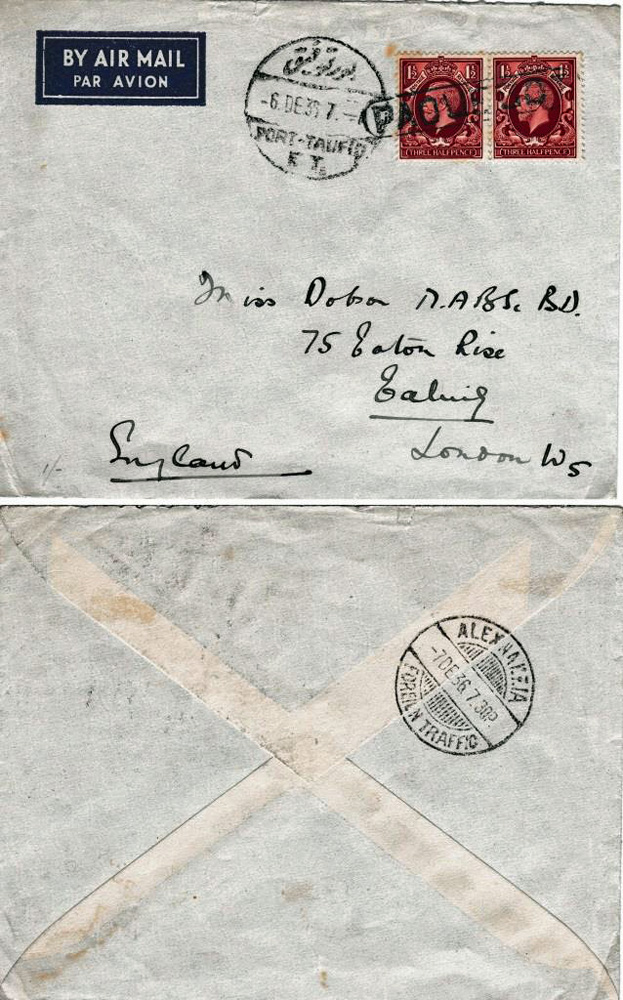 BY AIR MAIL
PAR AVION
بور توفيق
-6.DE.36 7.-
PORT-TAUFIQ
K T.
PAQUEBOT
1½ 1½
(THREE HALFPENCE)
1½ 1½
(THREE HALFPENCE)
Miss Dobson
75 Eaton Rise
Ealing
London W5
England
1/-
ALEXANDRIA
-7.DE.36.7.30P.
FOREIGN TRAFFIC